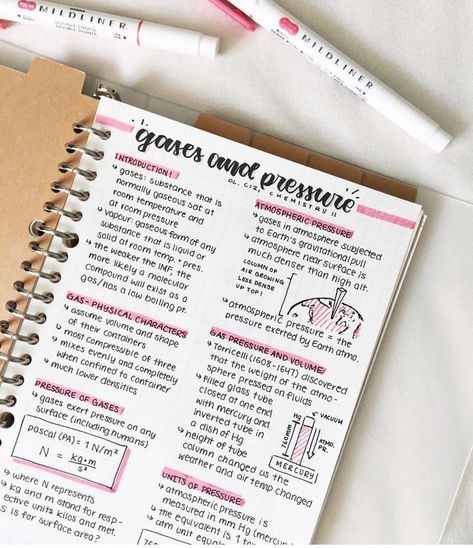 MILDLINER
MILDLINER
gases and pressure
CHEMISTRY 11
INTRODUCTION!
↳ gases: substance that is
normally gaseous sat at
room temperature and
at room pressure
↳ vapour: gaseous form of any
substance that is liquid or
solid at room temp. + pres.
↳ the weaker the IMF, the
more likely a molecular
compound will exist as a
gas/has a low boiling pt.
GAS- PHYSICAL CHARACTERS
↳ assume volume and shape
of their containers
↳ most compressible of three
↳ mixes evenly and completely
when confined to container
↳ much lower densities
PRESSURE OF GASES
↳ gases exert pressure on any
surface (including humans)
pascal (PA) = 1 N/m²
N = kg·m
s²
↳ where N represents
↳ kg and m stand for resp-
ective units kilos and met.
S is for surface area?
ATMOSPHERIC PRESSURE
↳ gases in atmosphere subjected
to Earth's gravitational pull
↳ atmosphere near surface is
much denser than high alt.
COLUMN OF
AIR GROWING
LESS DENSE
UP TOP!
↳ atmospheric pressure = the
pressure exerted by Earth atmo.
GAS PRESSURE AND VOLUME
↳ torricelli (1608-1647) discovered
that the weight of the atmo-
sphere pressed on fluids
↳ filled glass tube
closed at one end
with mercury and
inverted tube in
a dish of Hg
↳ height of tube
column changed as the
weather and air temp changed
VACUUM
760mm
ATMO.
PR.
MERCURY
UNITS OF PRESSURE
↳ atmospheric pressure is
measured in mm Hg (mercury
↳ the equivalent is 1 atm
760